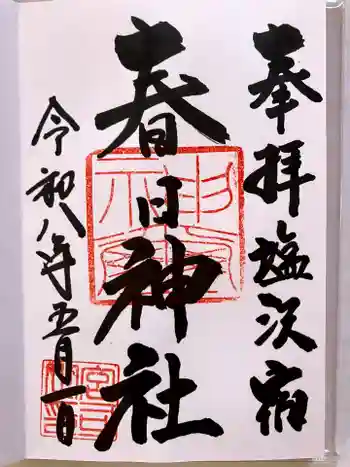 奉拝 塩次宿
春日神社
令和八年五月一日